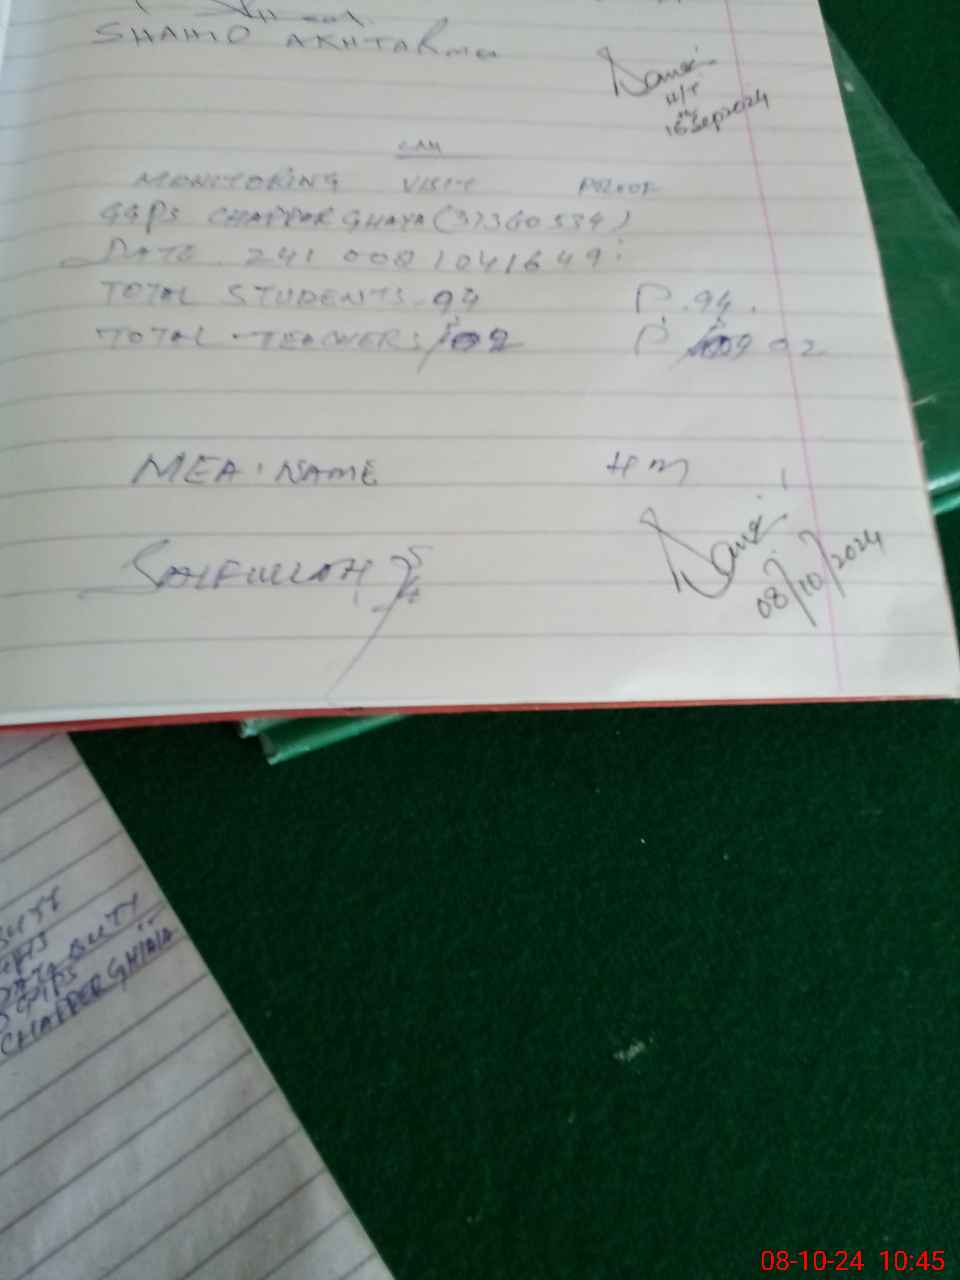 SHAHID AKHTAR MEA
H/T
16 Sep 2024
MONITORING VISIT PROOF
GGPS CHAPPAR GHAYA (37360534)
DATE. 241 008 1041649
TOTAL STUDENTS. 94 P. 94.
TOTAL TEACHERS 02 P 02
MEA. NAME HM
SAIFULLAH
08/10/2024
DUTY
GGPS
CHAPPER GHAIA
08-10-24 10:45